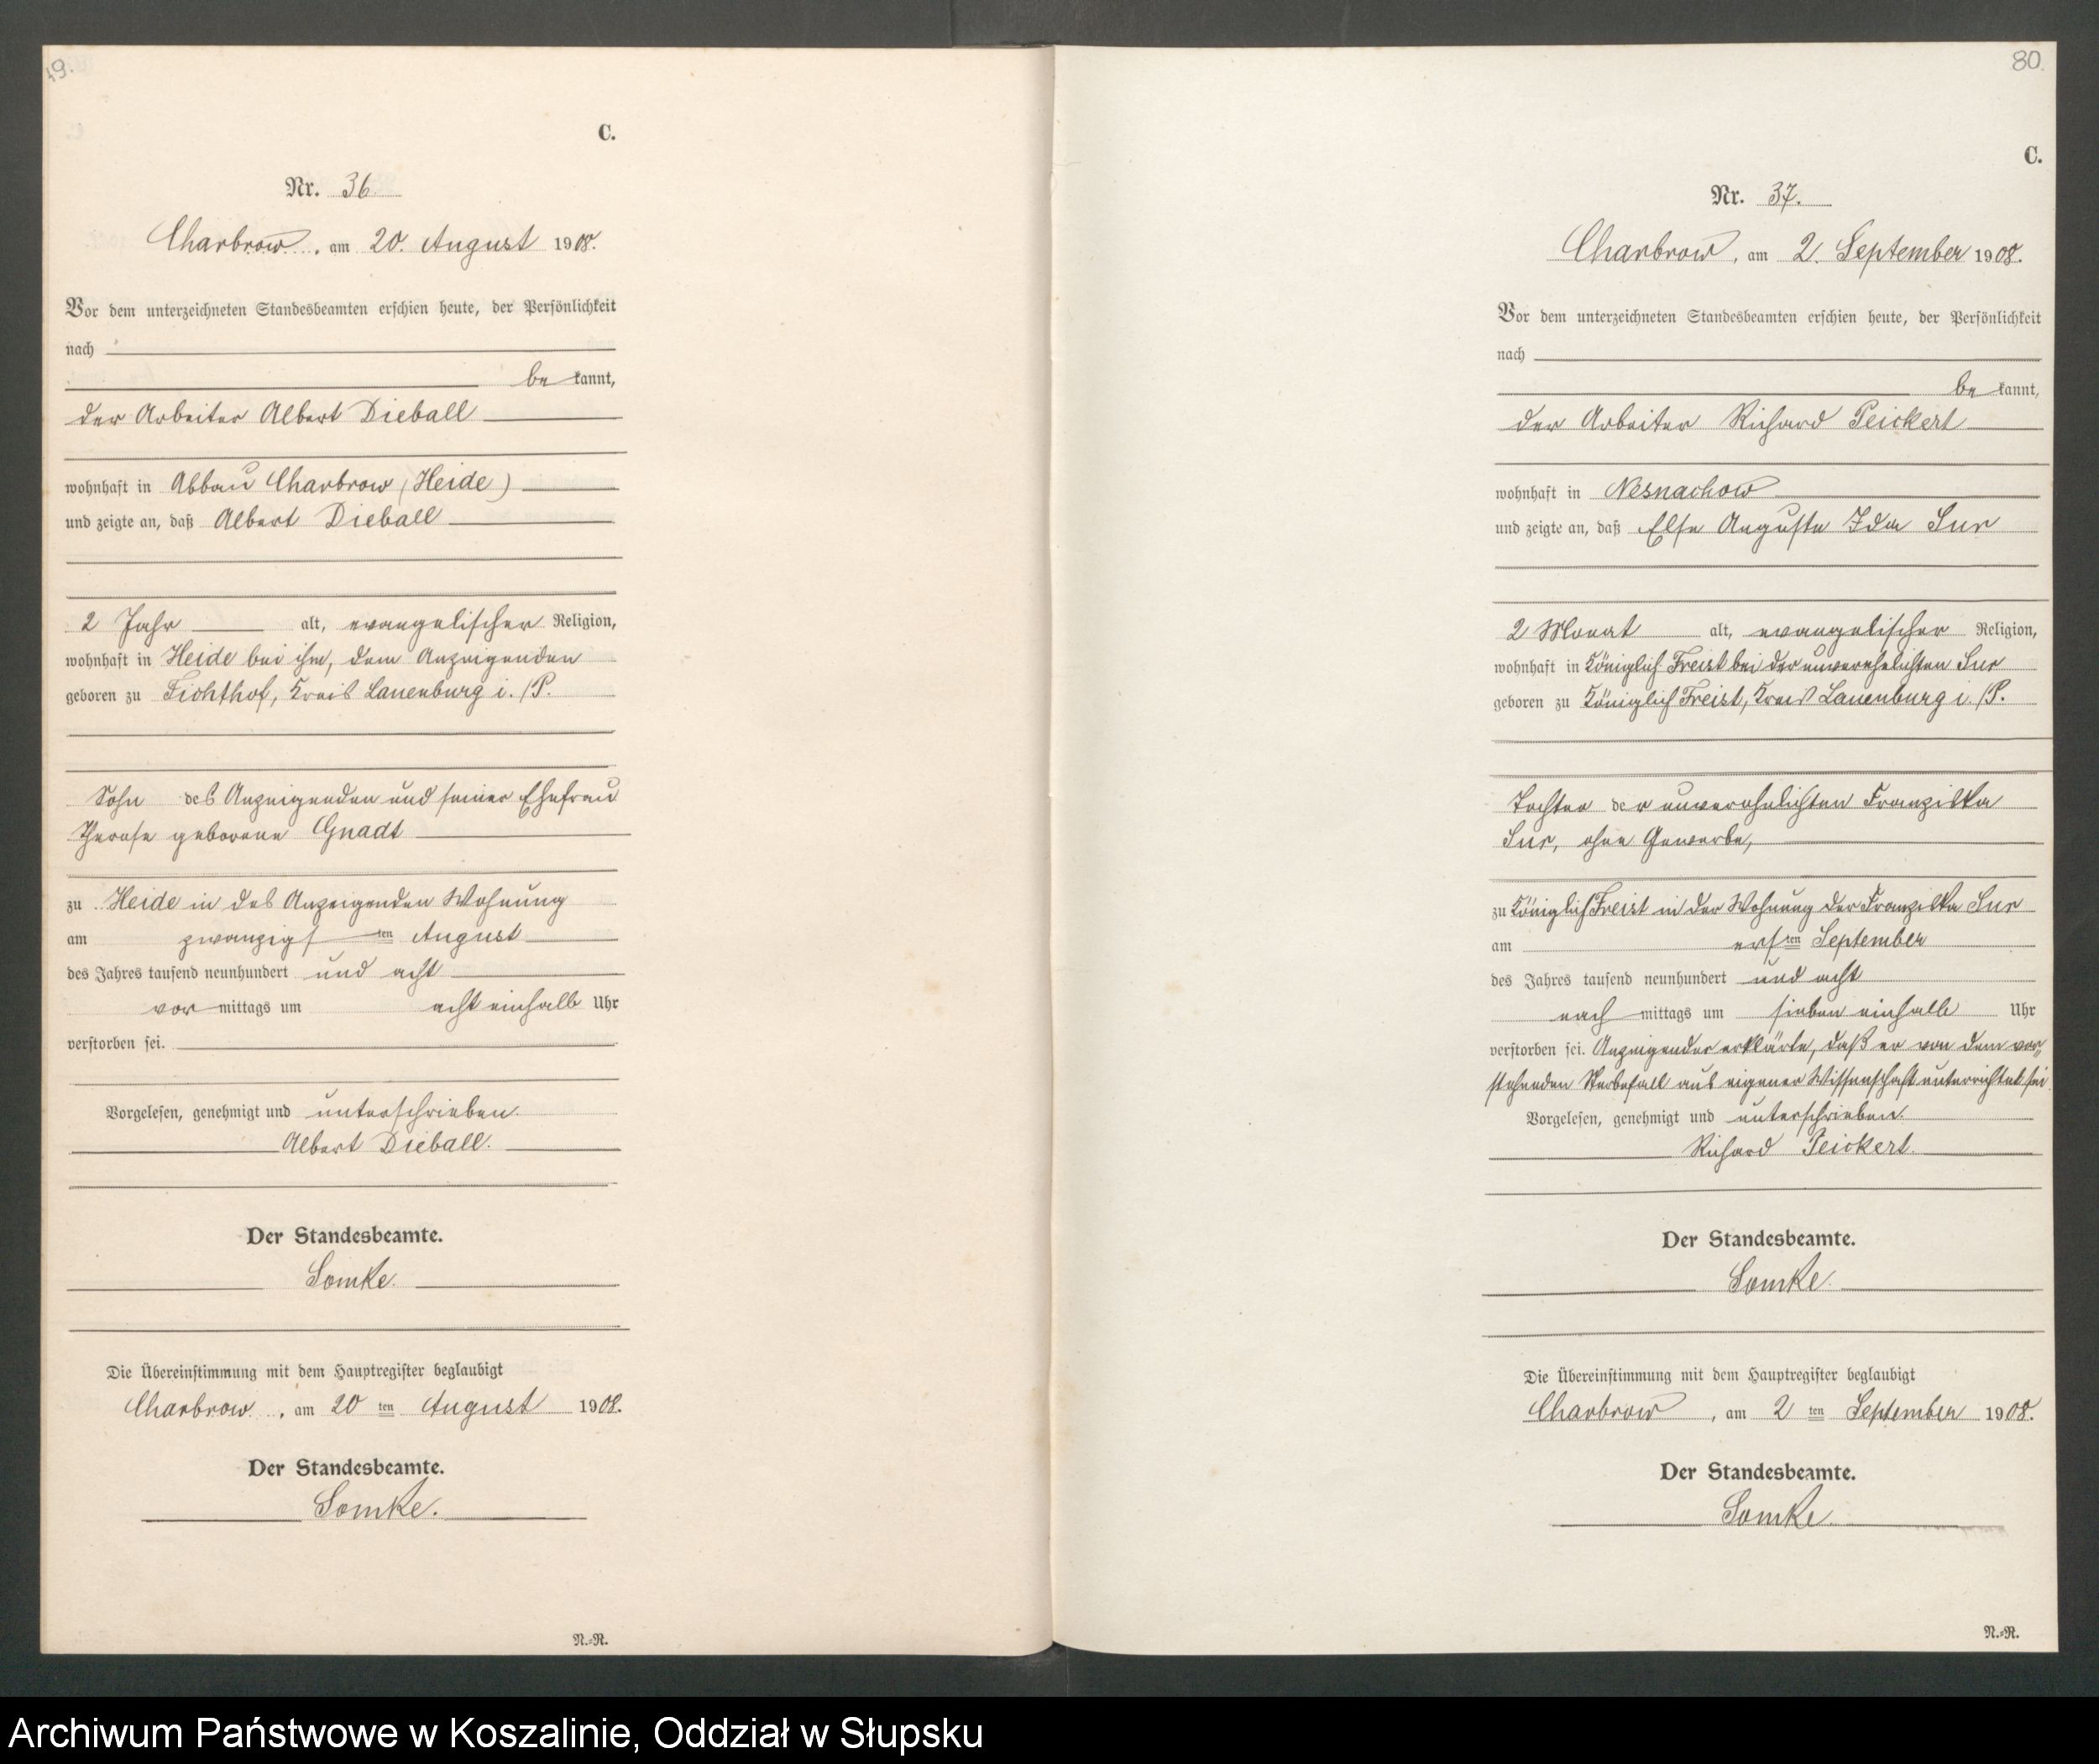 79.
C.
Nr. 36
Charbrow, am 20. August 1908.
Vor dem unterzeichneten Standesbeamten erschien heute, der Persönlichkeit
nach
be kannt,
der Arbeiter Albert Dieball
wohnhaft in Abbau Charbrow (Heide)
und zeigte an, daß Albert Dieball
2 Jahr alt, evangelischer Religion,
wohnhaft in Heide bei ihm, dem Anzeigenden
geboren zu Fichthof, Kreis Lauenburg i./P.
Sohn des Anzeigenden und seiner Ehefrau
Therese geborene Gnadt
zu Heide in des Anzeigenden Wohnung
am zwanzigsten August
des Jahres tausend neunhundert und acht
vor mittags um acht einhalb Uhr
verstorben sei.
Vorgelesen, genehmigt und unterschrieben.
Albert Dieball.
Der Standesbeamte.
Somke.
Die Übereinstimmung mit dem Hauptregister beglaubigt
Charbrow, am 20 ten August 1908.
Der Standesbeamte.
Somke.
N.=R.
80.
C.
Nr. 37.
Charbrow, am 2. September 1908.
Vor dem unterzeichneten Standesbeamten erschien heute, der Persönlichkeit
nach
be kannt,
der Arbeiter Richard Peickert
wohnhaft in Nesnachow
und zeigte an, daß Else Auguste Ida Sur
2 Monat alt, evangelischer Religion,
wohnhaft in Königlich Freist bei der unverehelichten Sur
geboren zu Königlich Freist, Kreis Lauenburg i./P.
Tochter der unverehelichten Franziska
Sur, ohne Gewerbe,
zu Königlich Freist in der Wohnung der Franziska Sur
am ersten September
des Jahres tausend neunhundert und acht
nach mittags um sieben einhalb Uhr
verstorben sei. Anzeigender erklärte, daß er von dem vor=
stehenden Sterbefall aus eigener Wissenschaft unterrichtet sei.
Vorgelesen, genehmigt und unterschrieben.
Richard Peickert.
Der Standesbeamte.
Somke.
Die Übereinstimmung mit dem Hauptregister beglaubigt
Charbrow, am 2 ten September 1908.
Der Standesbeamte.
Somke.
N.=R.
Archiwum Państwowe w Koszalinie, Oddział w Słupsku